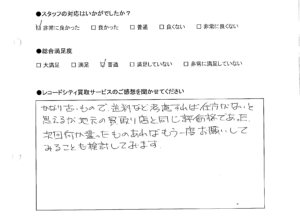 ●スタッフの対応はいかがでしたか？
☑ 非常に良かった　□ 良かった　□ 普通　□ 良くない　□ 非常に良くない
●総合満足度
□ 大満足　□ 満足　☑ 普通　□ 満足していない　□ 非常に満足していない
●レコードシティ買取サービスのご感想を聞かせてください
かなり古いもので、送料など考慮すれば仕方がないと
思えるが地元の買取り店と同じ評価格であった。
次回何か変ったものあればもう一店お願いして
みることも検討してみます。